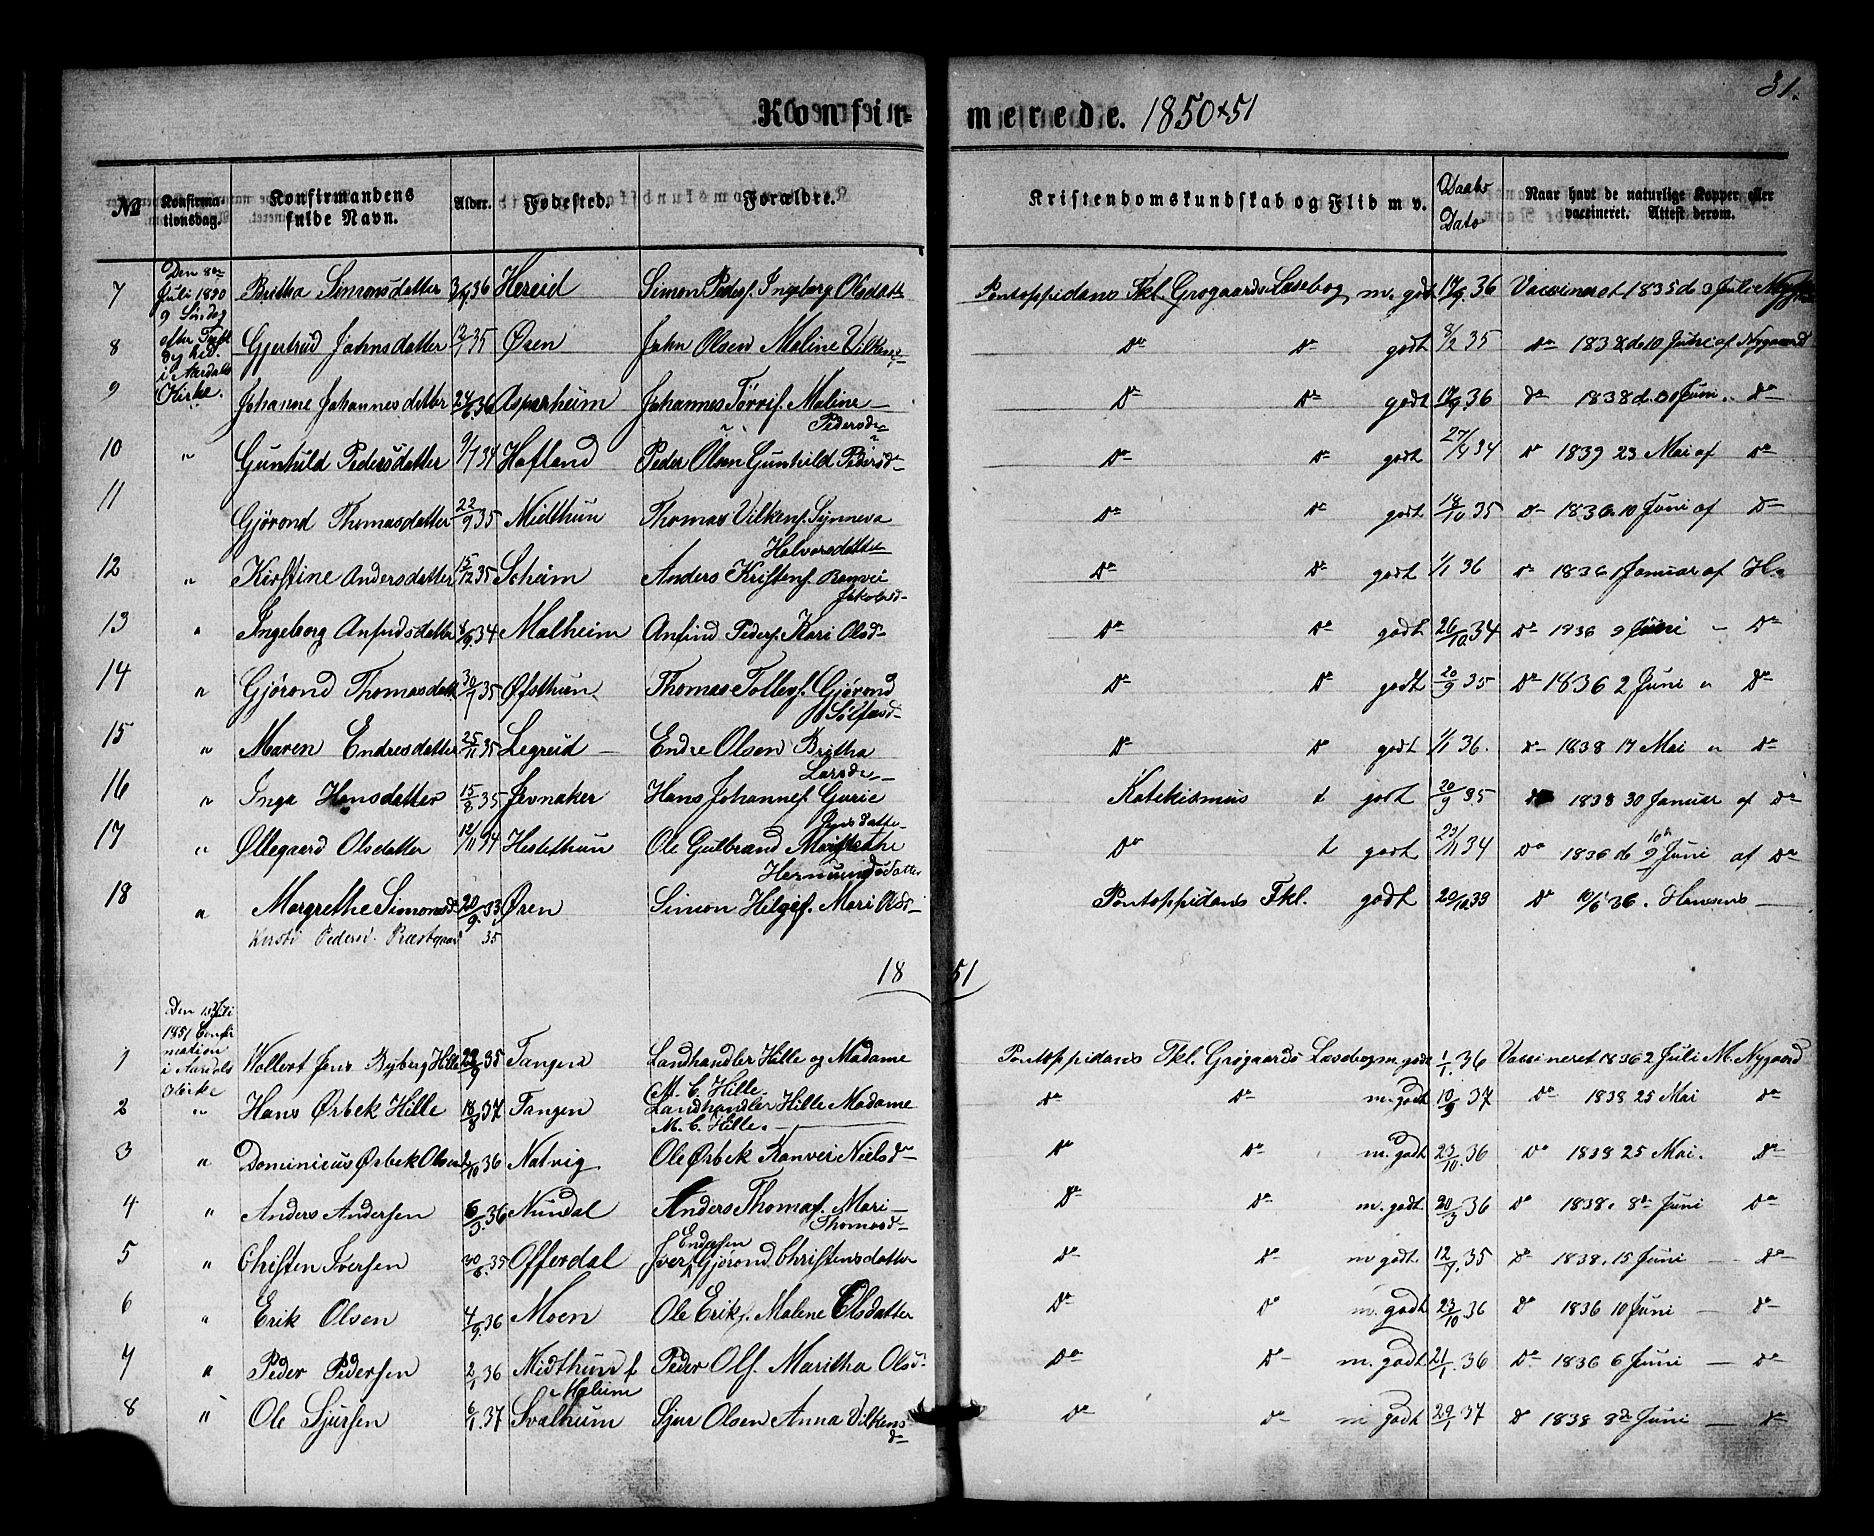 31.
Konfirmerede. 1850 & 51
No Konfirmationsdag. Konfirmandens fulde Navn. Alder. Fødested. Forældre. Kristendomskundskab og Flid m v. Daabs Dato Naar havt de naturlige Kopper eller vaccineret. Attest derom.
7 Den 8de Juli 1850 9 Søndag efter Treft Britha Simonsdatter 36 Hereid Simon Pedesf. Ingeborg Olsdatt Pontoppidans Fkl. Grøgaards Læsebog m. godt 17/9. 36 Vaccineret 1835 d. 3 Juli
8 i Aardals Gjertrud Johnsdatter 35 Øren John Olsen Maline Vilkens Do Do godt 8/2 35 Do 1838 d. 10 Juni af Nygaard
9 Kirke. Johanne Johannesdatter 24/6. 36 Asperheim Johannes Torrisf. Maline Pedersdr Do Do godt 17/9. 36 Do 1838 d. 30 Juni. Do
10 " Gunhild Pedersdatter 9/7 34 Hofland Peder Olsen Gunhild Pedersd Do Do godt 34 Do 1839 23 Mai af Do
11 Gjørond Thomasdatter 22/9 35 Midthun Thomas Vilkensf. Synneva Halvorsdatter Do Do godt 18/10 35 Do 1836. 10 Juni af Do
12 " Kirstine Andersdatter 15/12 35 Seheim Anders Kristensf. Ranvei Jakobsd Do Do godt 1/1 36 Do 1836 1 Januar af H.
13 " Ingeborg Anfindsdatter 8/9. 34 Malheim Anfind Pedersf. Kari Olsd Do Do godt 26/10. 34 Do 1836 9 Juni - Do
14 " Gjørond Thomasdatt 35 Øfsthun Thomas Tollefsf. Gjørond Sølfæsd Do Do godt 20/9 35 Do 1836 2 Juni " Do
15 " Maren Endresdatter 25/11 35 Legreid Endre Olsen Britha Larsdr Do Do godt 1/1 36. Do 1838 17 Mai " Do
16 " Inga Hansdatter 15/8 35 Jevnaker Hans Johannesf. Gurie Katekismus t godt 20/9 35 Do 1838 30 Januar af Do
17 " Øllegaard Olsdatter 12/11 34 Hestethun Ole Gulbrand Hermundsdatter Do t godt 23/11 34 Do 1836 d. 9 Juni af Do
18 " Margrethe Simonsd 20/9. 33 Øren Simon Helgesf. Mari Olsd Pontoppidans Fkl. godt 20/10 33 Do 10/6 36. Hansens
Kirsti Pedersd. Præstgaard 35
1851
1 Den 13 Juli 1851 Confirmation i Aardals Kirke Wollert Jens Byberg Hille 35 Tangen Landhandler Hille og Madame M. C. Hille Pontoppidans Fkl. Grøgaards Læsebog m. godt 1/1. 36 Vaccineret 1836 2 Juli M. Nygaard
2 " Hans Ørbek Hille 18/8 37 Tangen Landhandler Hille Madame M. C. Hille. Do Do m. godt 10/9 37 Do 1838 25 Mai Do
3 " Dominicus Ørbek Olsen 2/10 36 Natvig Ole Ørbek Ranvei Nielsdr Do Do m. godt 23/10. 36 Do 1838 25 Mai. Do
4 " Anders Andersen 6/3. 36 Nundal Anders Thomasf. Mari Thomasd Do Do m. godt 20/3 36 Do 1838. 8de Juni Do
5 " Christen Iversen 30/8. 35 Offerdal Iver Endresen Gjørond Christensdatter Do Do m godt 12/9. 35 Do 1838. 15 Juni Do
6 " Erik Olsen 4/9. 36 Moen Ole Eriksf. Malene Olsdatter Do Do m. godt 23/10 36 Do 1836 10 Juni Do
7 " Peder Pedersen 2/1 36 Midthun f Peder Olsf. Maritha Olsd. Do Do m. godt 21/1. 36 Do 1836 6 Juni Do
8 " Ole Sjursen 6/1. 37 Svalhum Sjur Olsen Anna Vilkensdr Do Do m godt 29/1 37 Do 1838 8de Juni Do